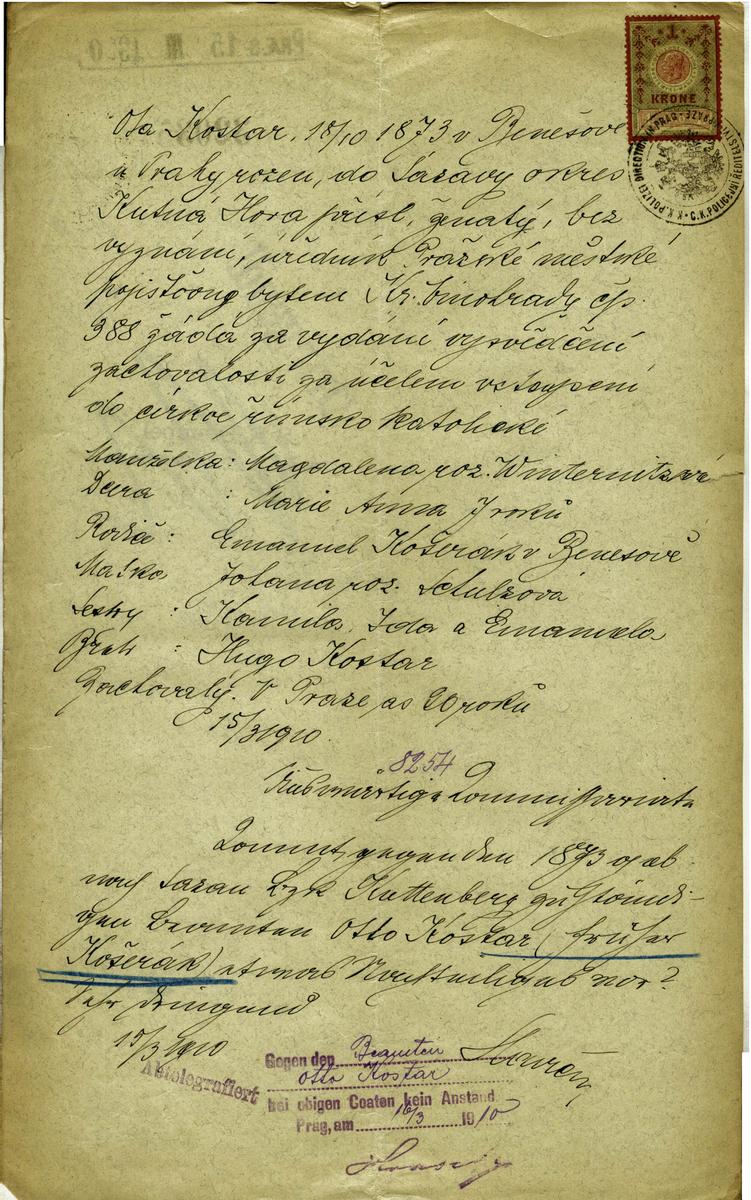 PRAG 15 III 1910
1
KRONE
K.K. POLIZEI DIRECTION IN PRAG • C.K. POLICEJNÍ ŘEDITELSTVÍ V PRAZE
Ota Kostar, 18/10 1873 v Benešově
u Prahy rozen, do Sázavy okres
Kutná Hora přísl., ženatý, bez
vyznání, úředník Pražské městské
pojišťovny bytem Kr. Vinohrady čp.
388 žádá za vydání vysvědčení
zachovalosti za účelem vstoupení
do církve římsko katolické
Manželka: Magdalena roz. Winternitzová
Dcera : Marie Anna 7 roků
Rodiče : Emanuel Košerák v Benesově
Matka Johana roz. Schulzová
Sestry : Kamila, Ida a Emanuela
Bratr : Hugo Kostar
Zachovalý. V Praze as 20 roků
15/3 1910.
8254
Auswärtige Commissariate
Kommt gegen den 1873 geb.
nach Sazau Bzk Kuttenberg zuständi-
gen Beamten Otto Kostar (früher
Košerák) etwas Nachteiliges vor?
Sehr dringend
15/3 1910
Abtelegrafiert
Gegen den Beamten
Otto Kostar
bei obigen Coaten kein Anstand
Prag, am 16/3 1910